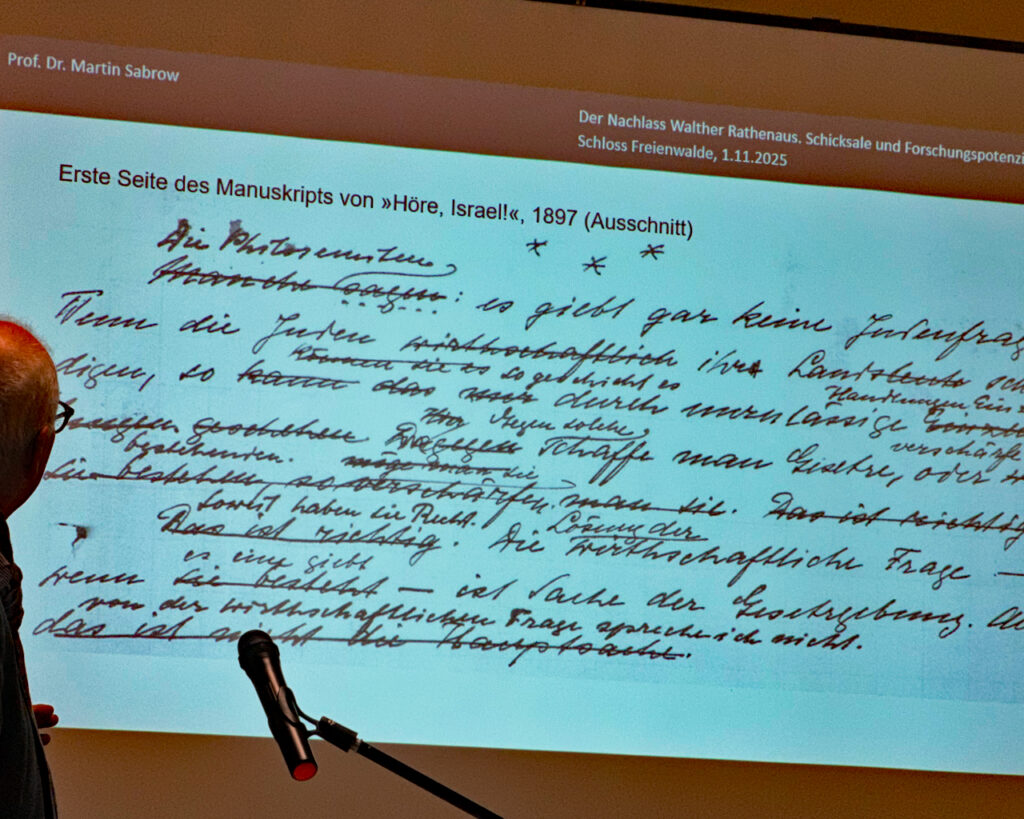 Prof. Dr. Martin Sabrow
Der Nachlass Walther Rathenaus. Schicksale und Forschungspotenzi
Schloss Freienwalde, 1.11.2025
Erste Seite des Manuskripts von »Höre, Israel!«, 1897 (Ausschnitt)
Die Philosemiten
* * *
Manche sagen: es giebt gar keine Judenfrag
Wenn die Juden wirthschaftlich ihre Landsleute sch
können sie es so geschieht es
Handlungen Ein
digen, so kann das nur durch unzulässige
Gegen solche
verschärfe
geschehen Dagegen Schaffe man Gesetze, oder
bestehenden. möge man sie
sie bestehen, so verschärfen man sie. Das ist richtig
Soweit haben sie Recht.
Lösung der
Das ist richtig. Die wirthschaftliche Frage —
es eine giebt
wenn sie besteht — ist Sache der Gesetzgebung.
von der wirthschaftlichen Frage spreche ich nicht.
das ist nicht die Hauptsache.